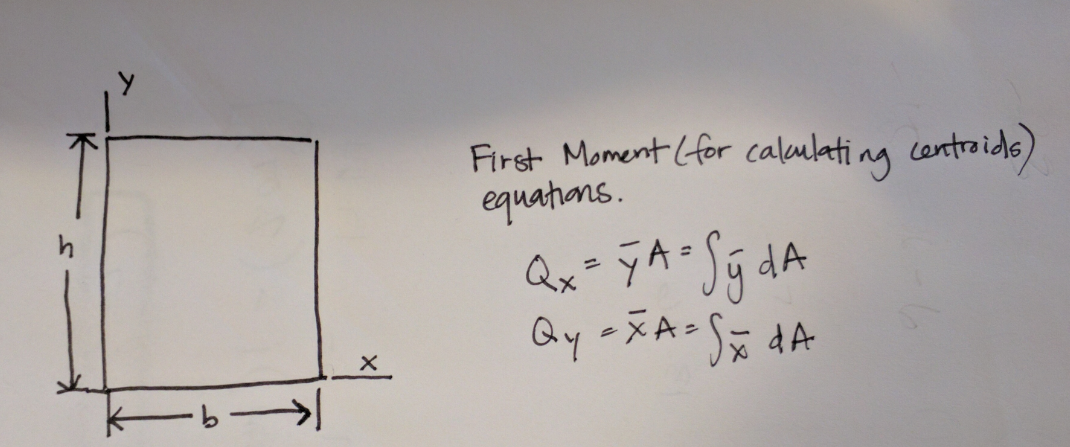 y
First Moment (for calculating centroids)
equations.
h
Qx = ȳA = ∫ȳ dA
Qy = x̄A = ∫x̄ dA
x
b